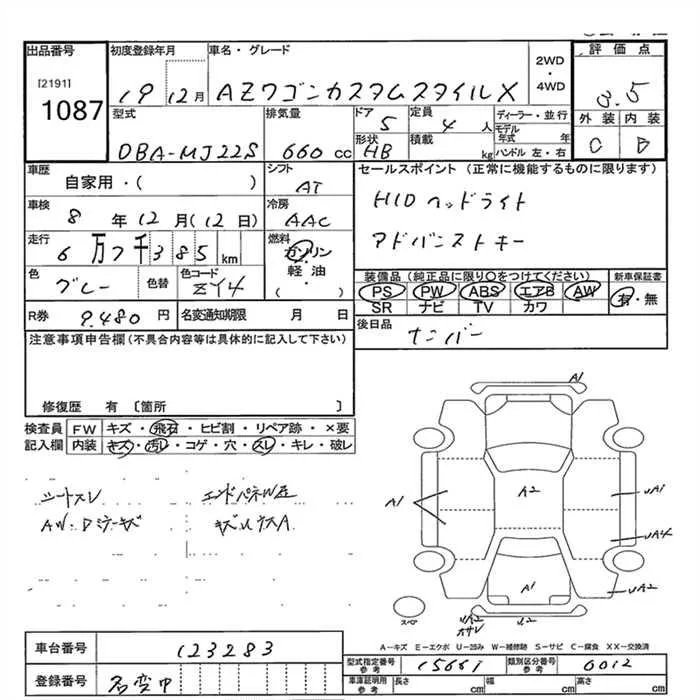 出品番号 初度登録年月 車名・グレード 2WD・4WD 評価点
[2191]
1087 19 12月 AZワゴンカスタムスタイルX 3.5
型式 排気量 ドア 5 定員 4人 ディーラー・並行 外装 内装
DBA-MJ22S 660cc 形状 HB 積載 kg モデル年式 年 ハンドル 左・右 C B
車歴 シフト セールスポイント (正常に機能するものに限ります)
自家用・( ) AT
車検 冷房 HIDヘッドライト
8年12月(12日) AAC
走行 燃料 アドバンストキー
6万7千385km ガソリン
軽油・( )
色 グレー 色替 色コード ZY4
装備品(純正品に限り○をつけてください) 新車保証書
PS PW ABS エアB AW 有・無
SR ナビ TV カワ
R券 9,480円 名変通知期限 月 日 後日品 ナンバー
注意事項申告欄(不具合内容等は具体的に記入して下さい)
修復歴 有 [箇所 ]
検査員 FW キズ・飛石・ヒビ割・リペア跡・×要
記入欄 内装 キズ・汚レ・コゲ・穴・スレ・キレ・破レ
シートスレ
AW・Dラーキズ
A1
A1
A2
A1
A2
スペア
A-キズ E-エクボ U-凹み W-補修跡 S-サビ C-腐食 XX-交換済
車台番号 123283
型式指定番号 参考 15661 類別区分番号 参考 0012
登録番号 名変中
車庫証明用 参考 長さ cm 幅 cm 高さ cm